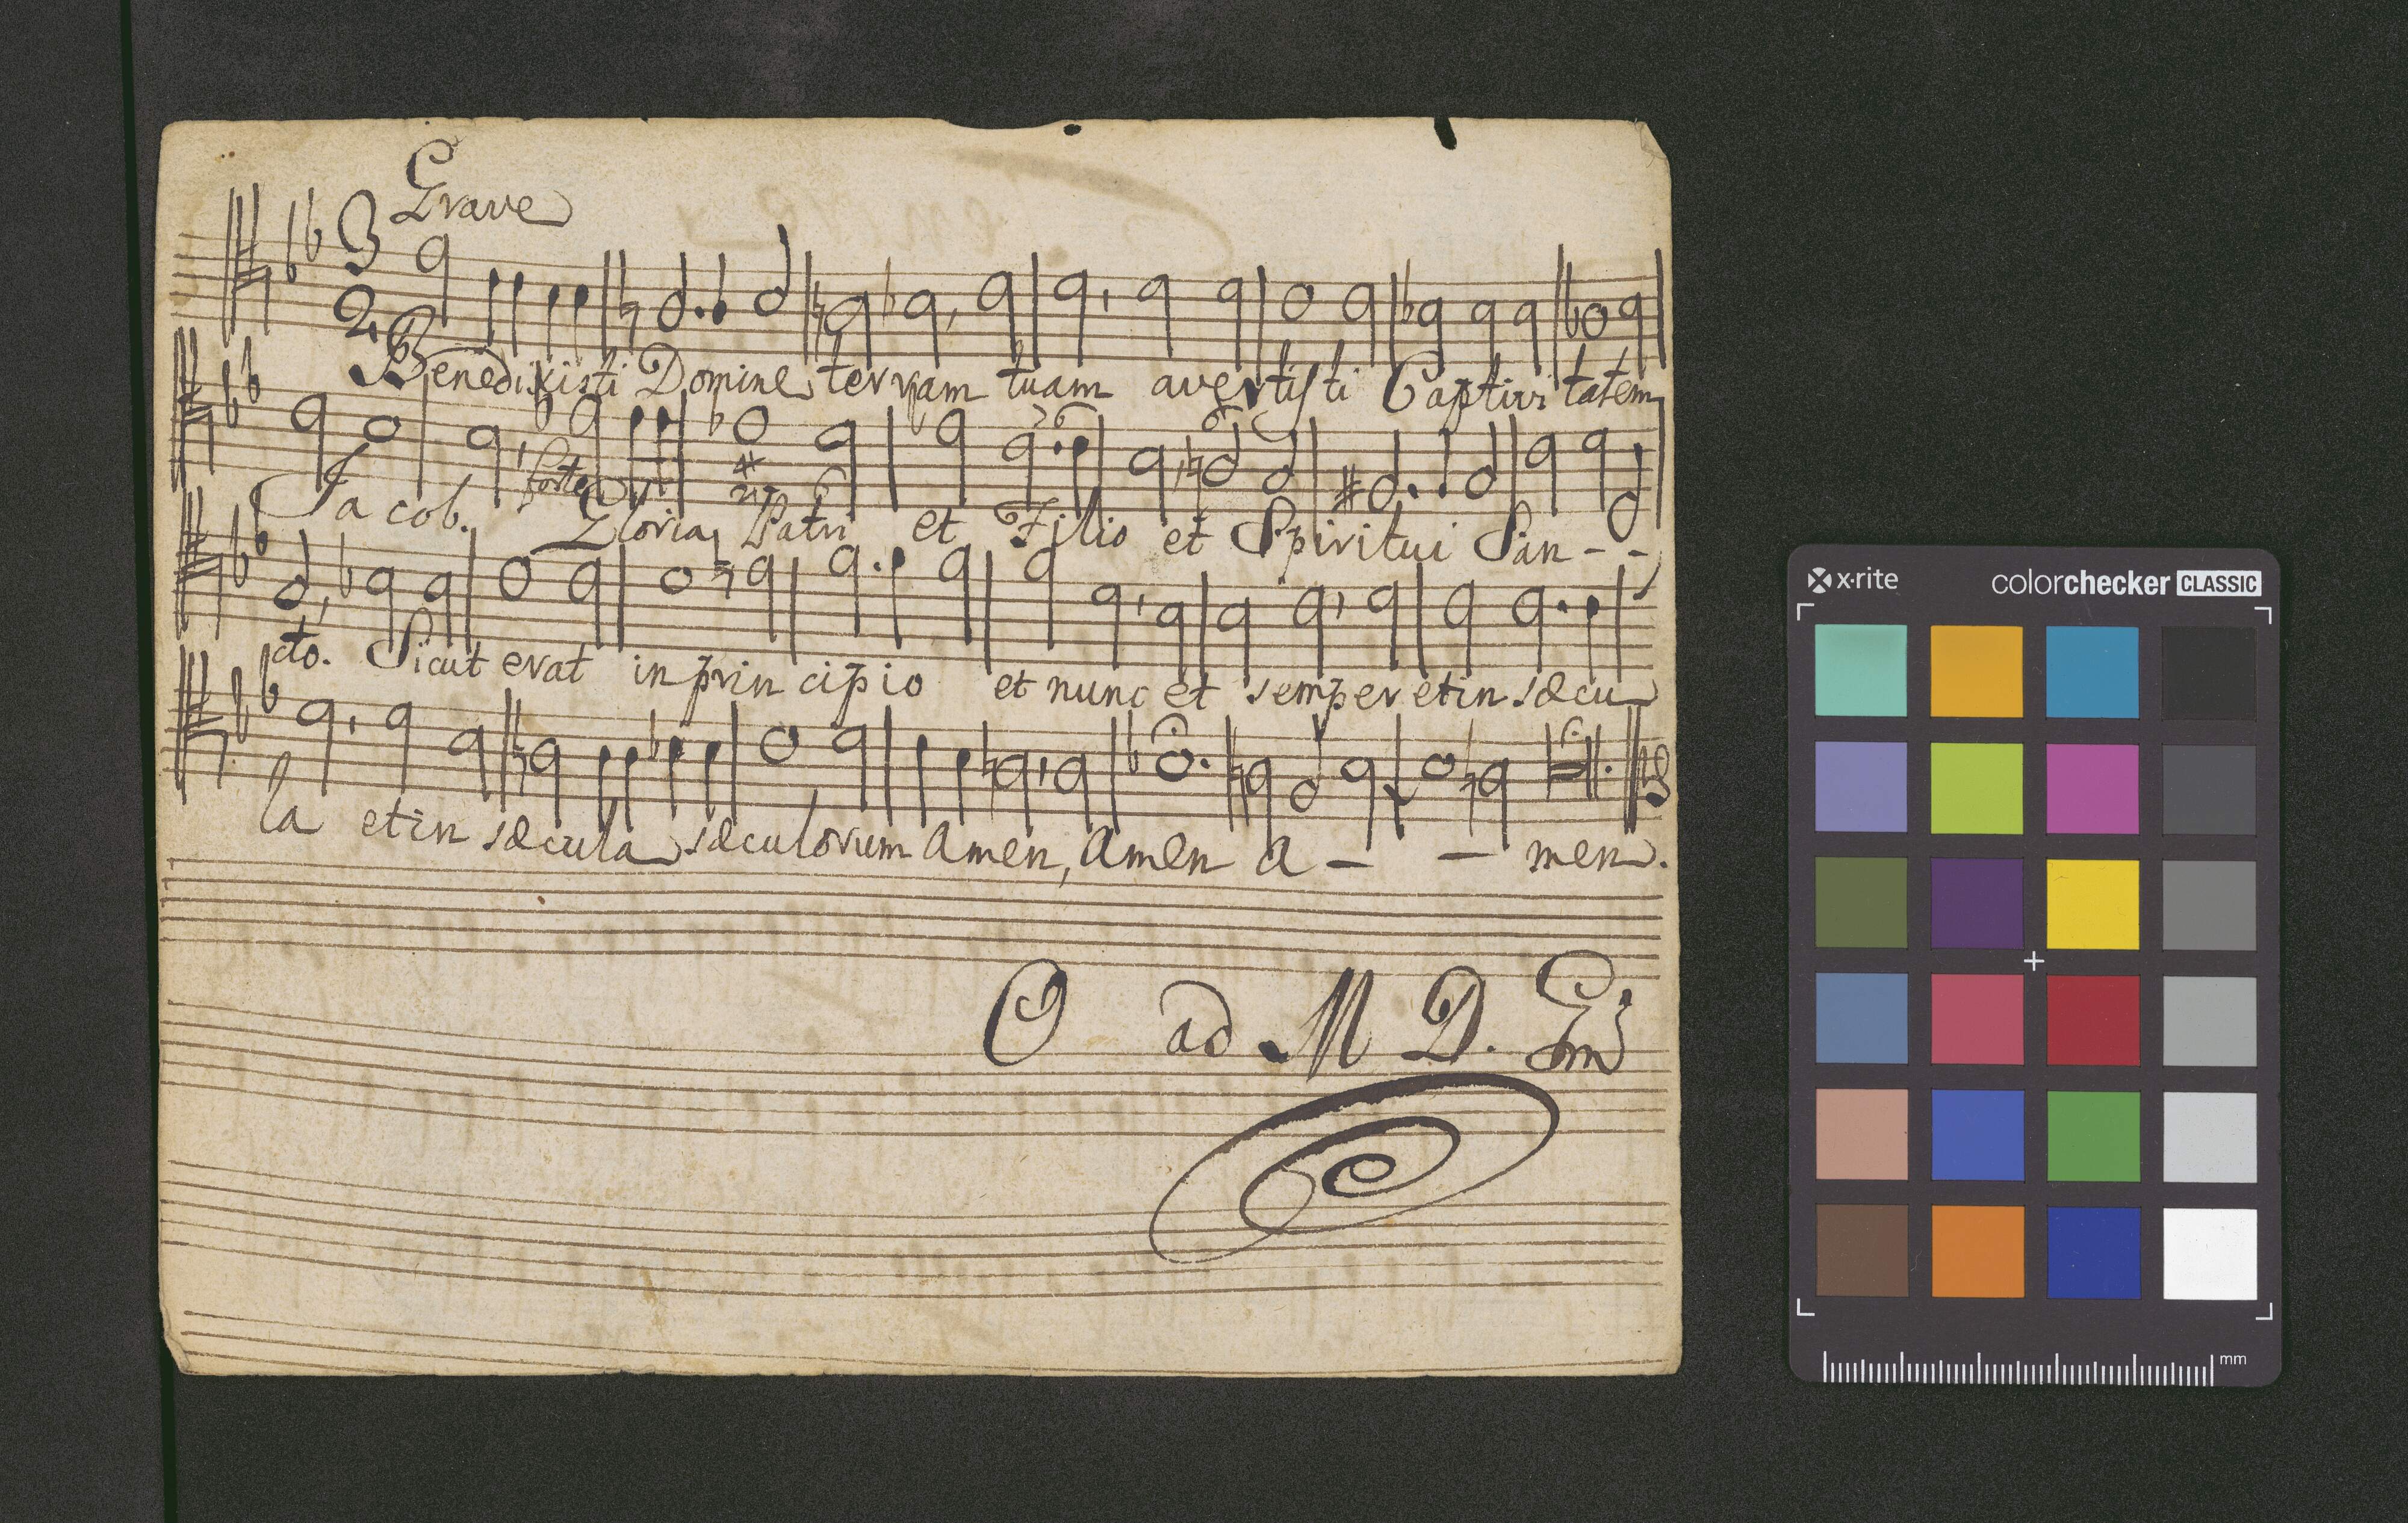 Grave
3
2
Benedixisti Domine terram tuam avertisti Captivitatem
Jacob. forte Gloria Patri et Filio et Spiritui San--
cto. Sicut erat in principio et nunc et semper et in sæcu
la et in sæcula sæculorum Amen, Amen a - - men.
O ad M D. G
x-rite colorchecker CLASSIC
mm